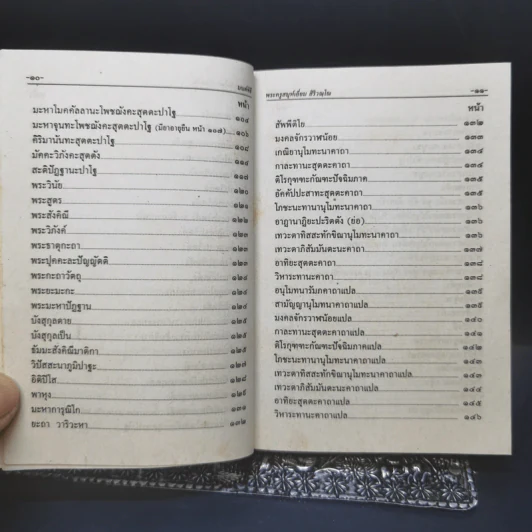 -๑๐-
หน้า
มะหาโมคคัลลานะโพชฌังคะสุตตะปาโฐ ๑๐๔
มะหาจุนทะโพชฌังคะสุตตะปาโฐ (มีอาฏานาฏิย หน้า ๑๐๗) ๑๐๖
คิริมานันทะสุตตะปาโฐ ๑๐๘
มัคคะวิภังคะสุตตัง ๑๑๔
สะติปัฏฐานะปาโฐ
พระวินัย ๑๒๐
พระสูตร ๑๒๑
พระสังคิณี ๑๒๒
พระวิภังค์ ๑๒๒
พระธาตุกะถา ๑๒๓
พระปุคคะละปัญญัตติ ๑๒๓
พระกะถาวัตถุ
พระยะมะกะ
พระมะหาปัฏฐาน
บังสุกุลตาย ๑๒๕
บังสุกุลเป็น ๑๒๕
ธัมมะสังคิณีมาติกา ๑๒๕
วิปัสสะนาภูมิปาฐะ
อิติปิโส ๑๒๘
พาหุง
มะหาการุณิโก ๑๓๑
ยะถา วาริวะหา ๑๓๒
-๑๑-
หน้า
สัพพีติโย ๑๓๒
มงคลจักรวาฬน้อย ๑๓๓
เกณิยานุโมทะนาคาถา ๑๓๔
กาละทานะสุตตะคาถา ๑๓๕
ติโรกุฑฑะกัณฑะปัจฉิมภาค ๑๓๕
อัคคัปปะสาทะสุตตะคาถา ๑๓๕
โภชะนะทานานุโมทะนาคาถา ๑๓๖
อาฏานาฏิยะปะริตตัง (ย่อ) ๑๓๖
เทวะตาทิสสะทักขิณานุโมทะนาคาถา ๑๓๖
เทวะตาภิสัมมันตะนะคาถา ๑๓๗
อาทิยะสุตตะคาถา ๑๓๘
วิหาระทานะคาถา ๑๓๘
อนุโมทนารัมภคาถาแปล ๑๓๕
สามัญญานุโมทนาคาถาแปล ๑๓๕
มงคลจักรวาฬน้อยแปล ๑๔๐
กาละทานะสุตตะคาถาแปล ๑๔๑
ติโรกุฑฑะกัณฑะปัจฉิมภาคแปล ๑๔๒
โภชะนะทานานุโมทะนาคาถาแปล ๑๔๓
เทวะตาทิสสะทักขิณานุโมทะนาคาถาแปล ๑๔๓
เทวะตาภิสัมมันตะนะคาถาแปล ๑๔๔
อาทิยะสุตตะคาถาแปล ๑๔๕
วิหาระทานะคาถาแปล ๑๔๖